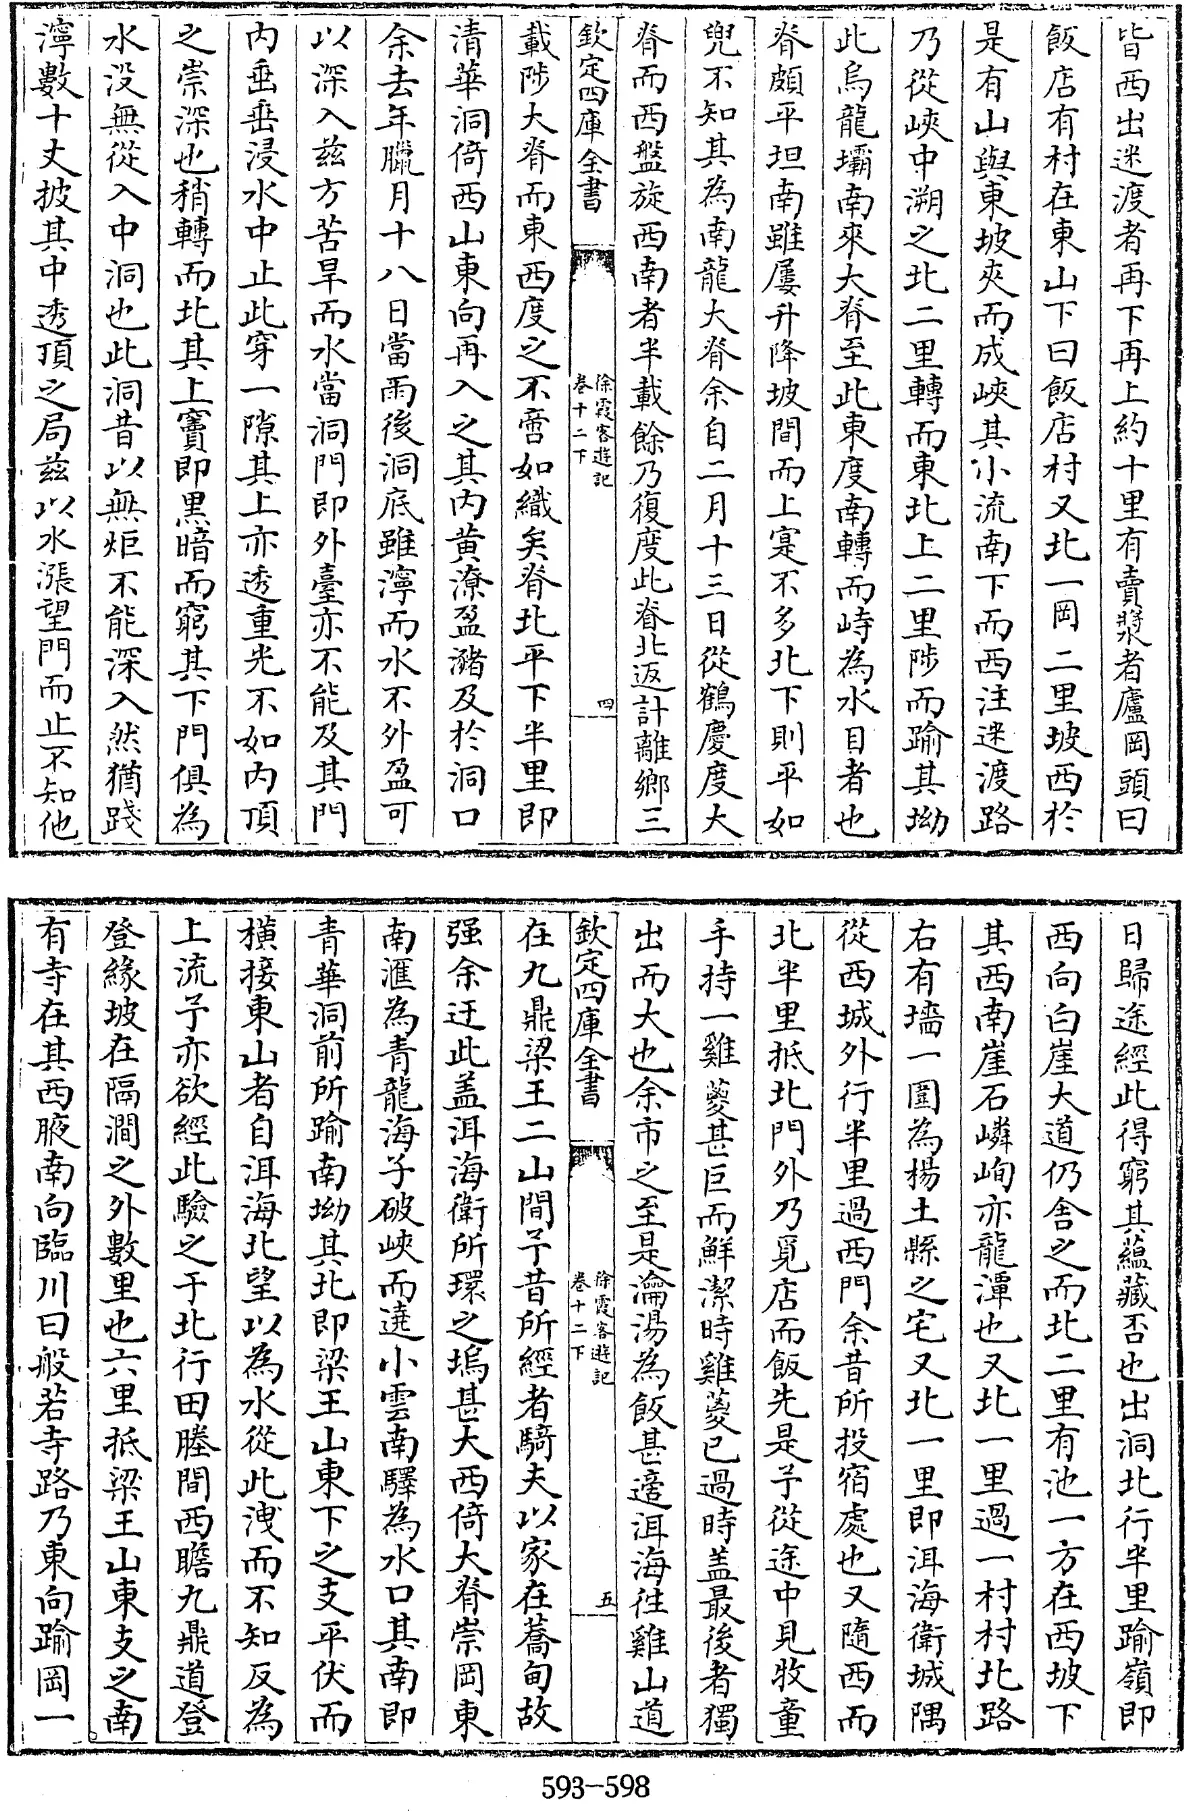 皆西出迷渡者再下再上約十里有賣漿者廬岡頭曰
飯店有村在東山下曰飯店村又北一岡二里坡西於
是有山與東坡夾而成峽其小流南下而西注迷渡路
乃從峽中溯之北二里轉而東北上二里陟而踰其坳
此烏龍壩南來大脊至此東度南轉而峙為水目者也
脊頗平坦南雖屢升降坡間而上寔不多北下則平如
兜不知其為南龍大脊余自二月十三日從鶴慶度大
脊而西盤旋西南者半載餘乃復度此脊北返計離鄉三
欽定四庫全書
徐霞客遊記
卷十二下
四
載陟大脊而東西度之不啻如織矣脊北平下半里即
清華洞倚西山東向再入之其内黄潦盈瀦及於洞口
余去年臘月十八日當雨後洞底雖濘而水不外盈可
以深入兹方苦旱而水當洞門即外臺亦不能及其門
内垂壵浸水中止此穿一隙其上亦透重光不如内頂
之崇深也稍轉而北其上竇即黒暗而窮其下門俱為
水没無從入中洞也此洞昔以無炬不能深入然猶踐
濘數十丈披其中透頂之局兹以水漲望門而止不知他
日歸途經此得窮其蘊藏否也出洞北行半里踰嶺即
西向白崖大道仍舍之而北二里有池一方在西坡下
其西南崖石嶙峋亦龍潭也又北一里過一村村北路
右有墻一圍為楊土縣之宅又北一里即洱海衛城隅
從西城外行半里過西門余昔所投宿處也又隨西而
北半里抵北門外乃覓店而飯先是予從途中見牧童
手持一雞葼甚巨而鮮潔時雞葼已過時盖最後者獨
出而大也余市之至是瀹湯為飯甚適洱海往雞山道
欽定四庫全書
徐霞客遊記
卷十二下
五
在九鼎梁王二山間予昔所經者騎夫以家在蕎甸故
强余迂此盖洱海衛所環之塢甚大西倚大脊崇岡東
南滙為青龍海子破峽而遶小雲南驛為水口其南即
青華洞前所踰南坳其北即梁王山東下之支平伏而
横接東山者自洱海北望以為水從此洩而不知反為
上流予亦欲經此驗之于北行田塍間西瞻九鼎道登
登緣坡在隔澗之外數里也六里抵梁王山東支之南
有寺在其西腋南向臨川曰般若寺路乃東向踰岡一
593-598